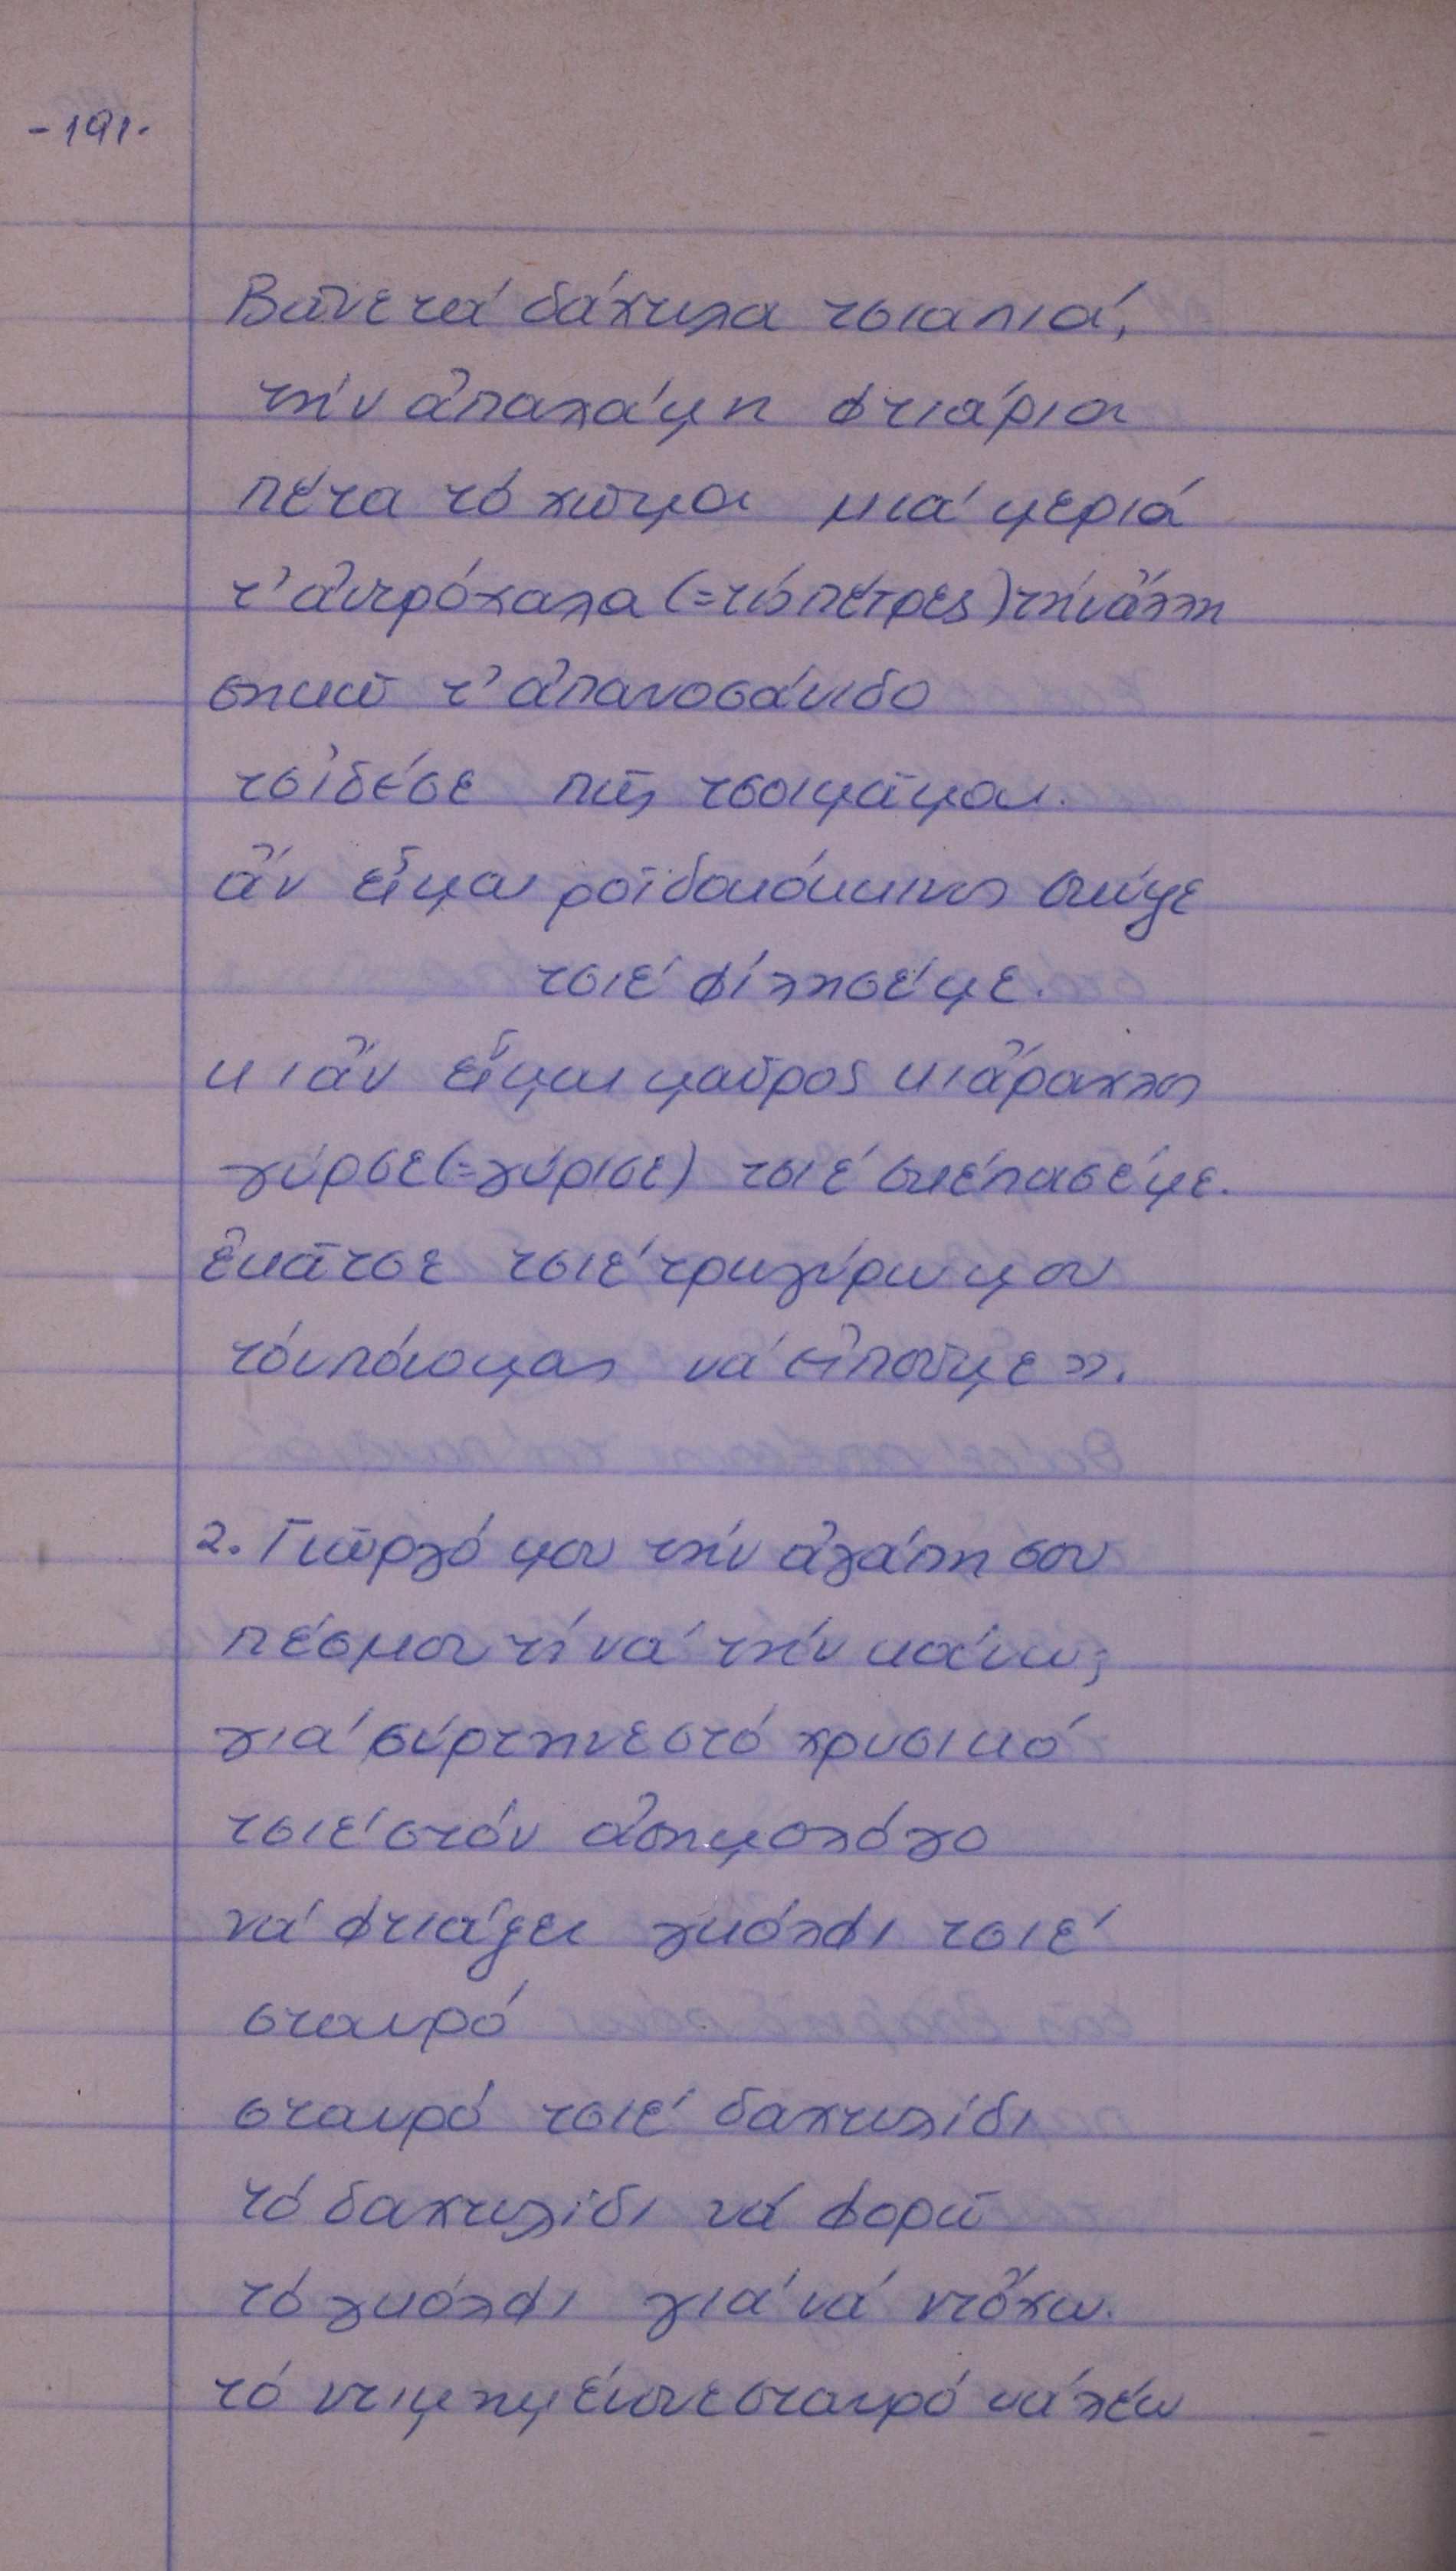 -191-
Βᾶνε τά δάχτυλα τσιαπιά,
τήν ἀπαλάμη φτιάρια
πέτα τό χῶμα μιά μεριά
τ' ἀντρόχαλα (=τίς πέτρες) τήν ἄλλη
σηκῶ τ' ἀπανοσάνιδο
τσ' ἰδέσε πῶς τσοιμᾶμαι.
ἄν εἶμαι ροϊδοκόκκινος σκύψε
τσιέ φίλησέ με.
κι ἄν εἶμαι μαῦρος κι ἄραχλος
γύρσε (=γύρισε) τσιέ σκέπασέ με.
ἐκᾶτσε τσιέ τρυγύρω μου
τόν πόνο μας νά εἰποῦμε».
2. Γιῶργό μου τήν ἀγάπη σου
πέσμου τί νά τήν κάνω;
γιά σύρτηνε στό χρυσικό
τσιέ στόν ἀσημολόγο
νά φτιάξει γκόλφι τσιέ
σταυρό
σταυρό τσιέ δαχτυλίδι
τό δαχτυλίδι νά φορῶ
τό γκόλφι γιά νά ντὄχω.
τό ντιμημένονε σταυρό νά λέω